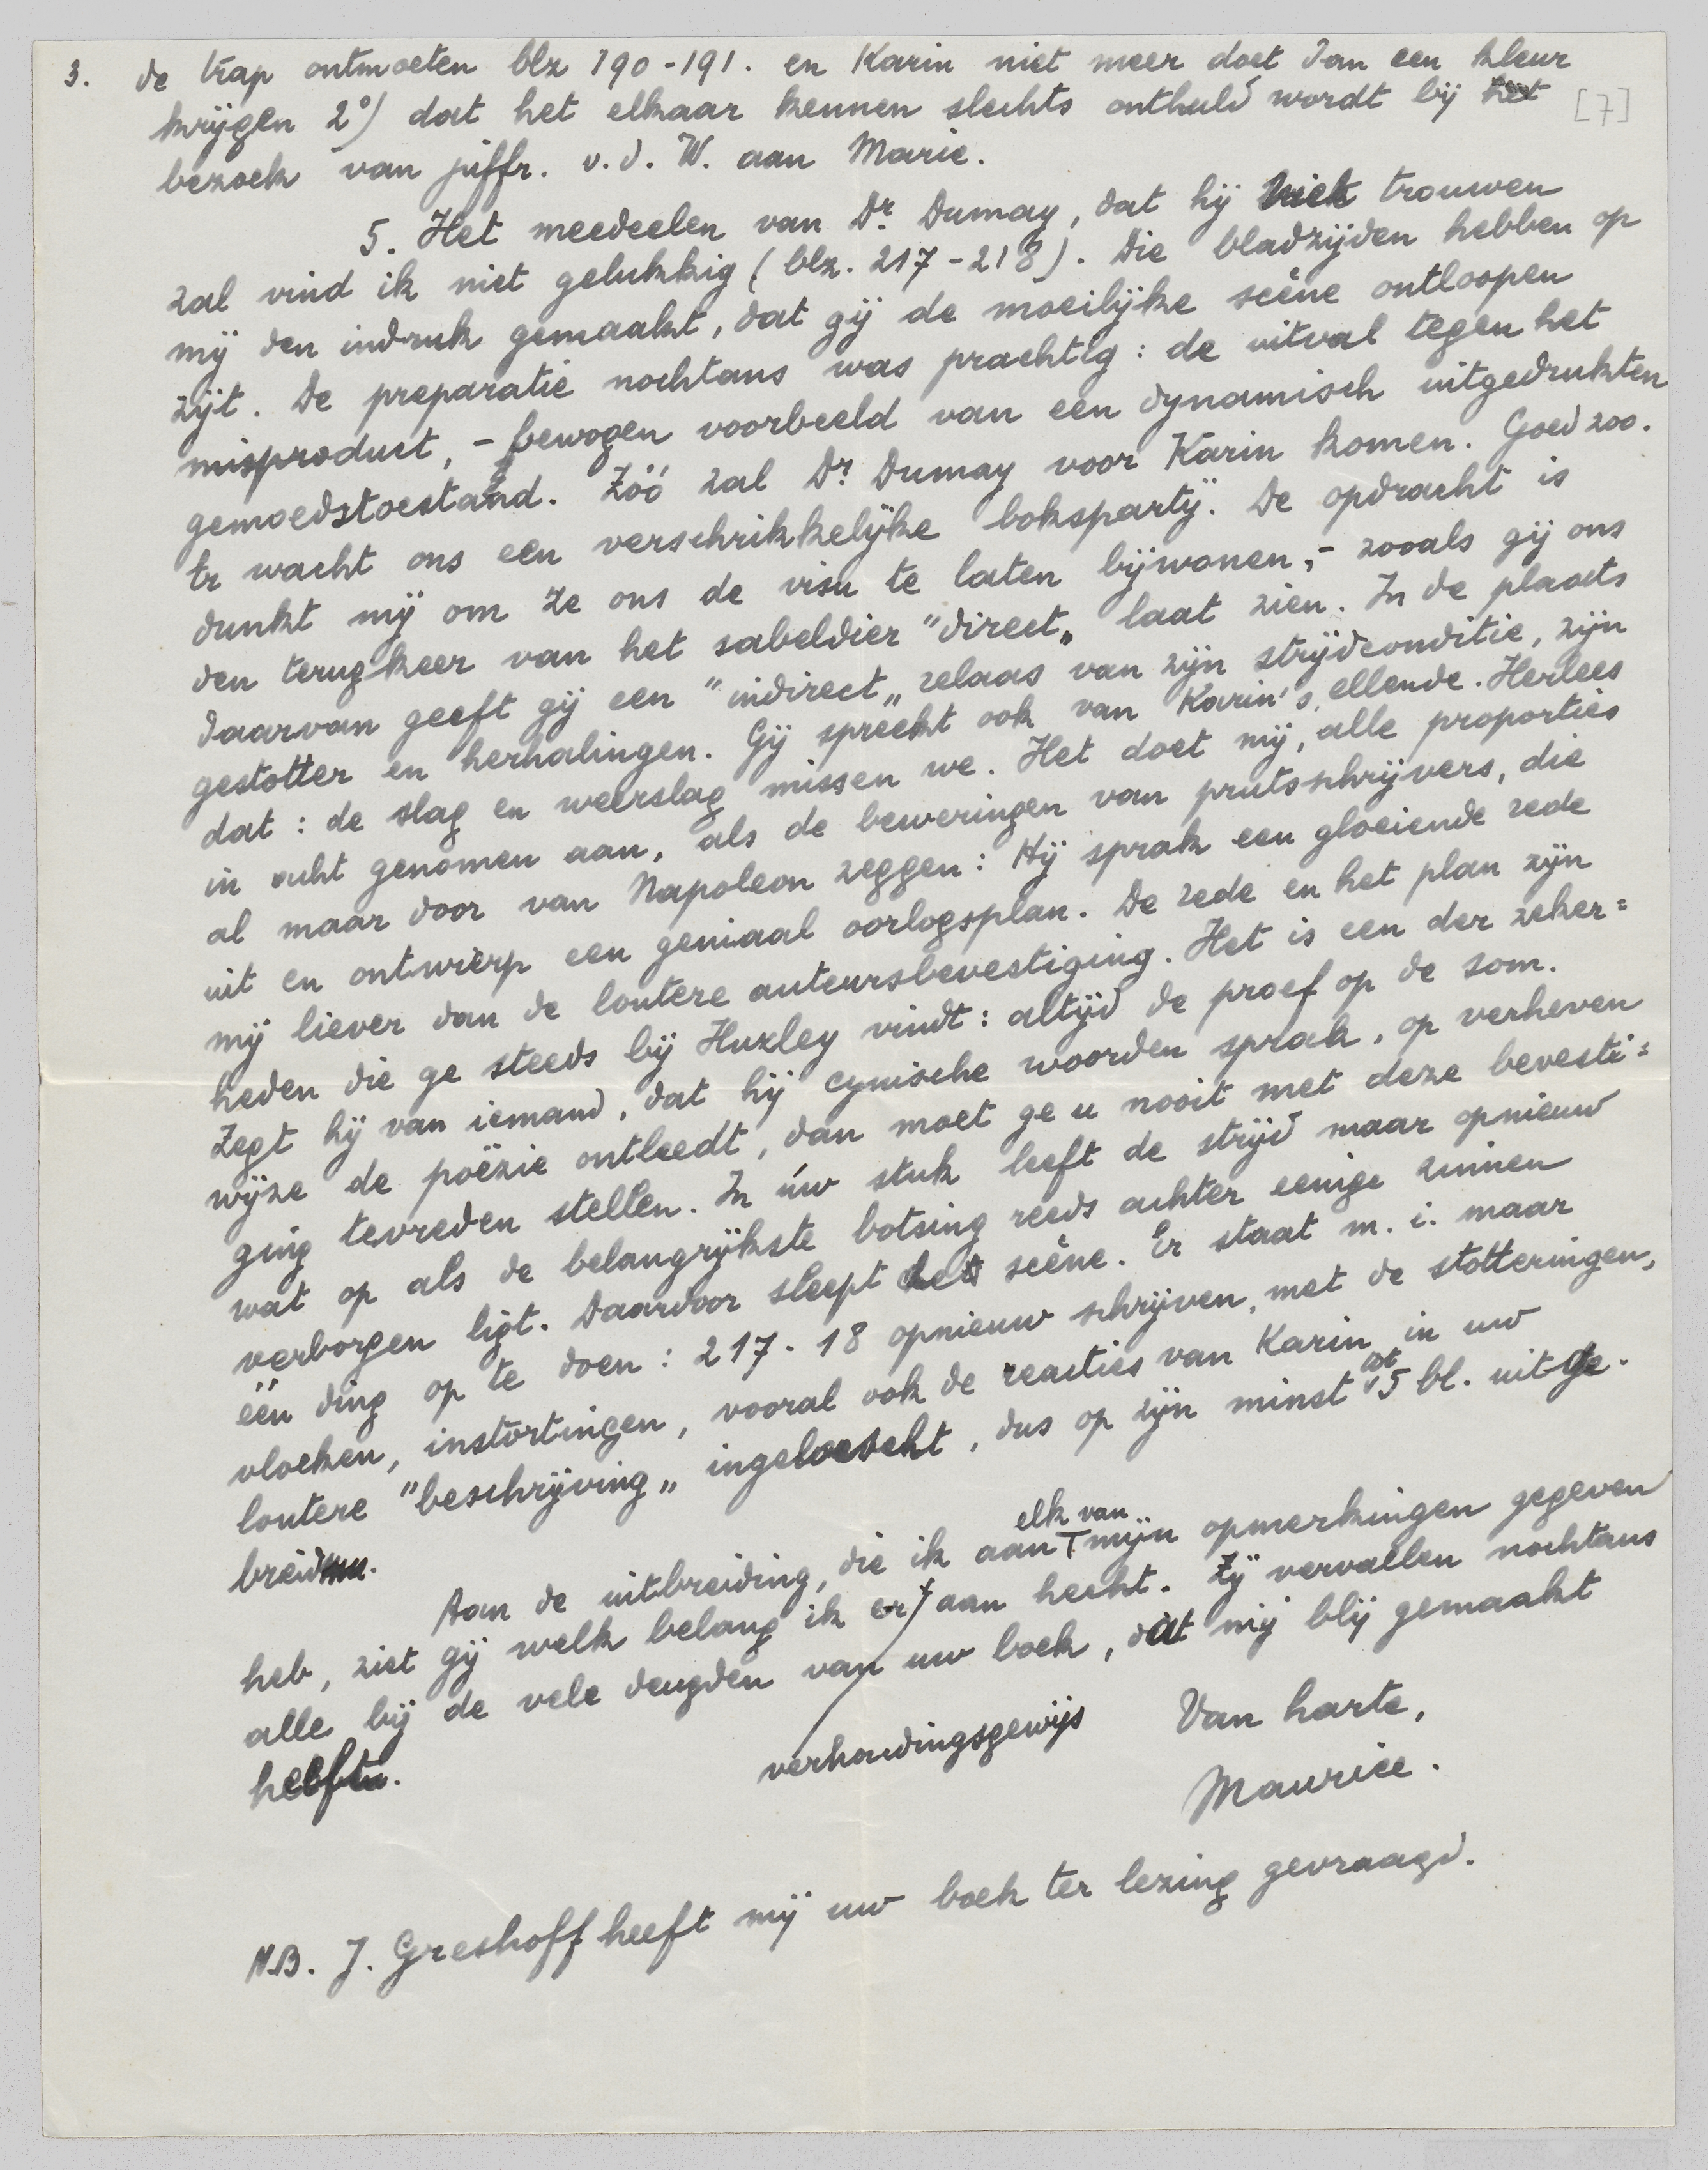 3. de trap ontmoeten blz 190-191. en Karin niet meer doet Jan een kleur
krijgen 2°) dat het elkaar kennen slechts onthuld wordt bij het
[7]
bezoek van juffr. v.d. W. aan Marie.
5. Het meedeelen van Dr. Dumay, dat hij Kriek trouwen
zal vind ik niet gelukkig (blz. 217-218). Die bladzijden hebben op
mij den indruk gemaakt, dat gij de moeilijke scène ontloopen
zijt. De preparatie nochtans was prachtig: de uitval tegen het
misproduct, - bewogen voorbeeld van een dynamisch uitgedrukten
gemoedstoestand. Zóó zal Dr. Dumay voor Karin komen. Goed zoo.
Er wacht ons een verschrikkelijke bokspartij. De opdracht is
dunkt mij om ze ons de visu te laten bijwonen, - zooals gij ons
den terugkeer van het sabeldier "direct" laat zien. In de plaats
daarvan geeft gij een "indirect" relaas van zijn strijdconditie, zijn
gestotter en herhalingen. Gij spreekt ook van Karin's ellende. Herlees
dat: de slag en weerslag missen we. Het doet mij, alle proporties
in acht genomen aan, als de beweringen van prutsschrijvers, die
al maar door van Napoleon zeggen: Hij sprak een gloeiende rede
uit en ontwierp een geniaal oorlogsplan. De rede en het plan zijn
mij liever dan de loutere auteursbevestiging. Het is een der zeker=
heden die ge steeds bij Huxley vindt: altijd de proef op de som.
Zegt hij van iemand, dat hij cynische woorden sprak, op verheven
wijze de poëzie ontleedt, dan moet ge u nooit met deze bevesti=
ging tevreden stellen. In úw stuk leeft de strijd maar opnieuw
wat op als de belangrijkste botsing reeds achter eenige zinnen
verborgen ligt. Daardoor sleept de scène. Er staat m.i. maar
één ding op te doen: 217-18 opnieuw schrijven, met de stotteringen,
vloeken, instortingen, vooral ook de reacties van Karin in uw
loutere "beschrijving" ingelascht, dus op zijn minst tot 5 bl. uitge-
breid.
Aan de uitbreiding, die ik aan elk van mijn opmerkingen gegeven
heb, ziet gij welk belang ik er verhoudingsgewijs aan hecht. Zij vervallen nochtans
alle bij de vele deugden van uw boek, dat mij blij gemaakt
heeft.
Van harte,
Maurice.
N.B. J. Greshoff heeft mij uw boek ter lezing gevraagd.